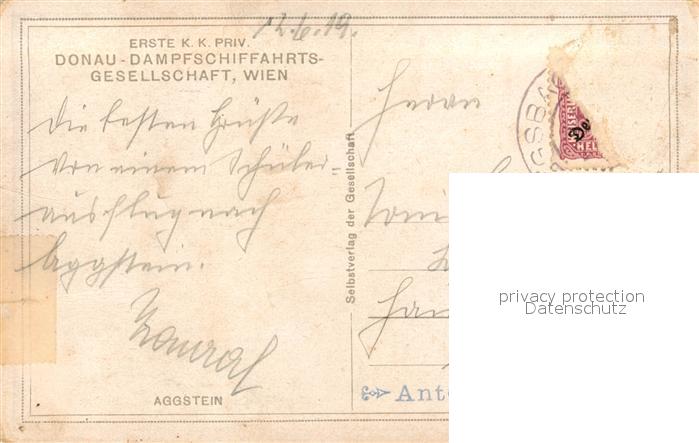 12.6.19.
ERSTE K. K. PRIV.
DONAU-DAMPFSCHIFFAHRTS-
GESELLSCHAFT, WIEN
Die besten Grüße
von einem Schüler-
ausflug nach
Aggstein.
AGGSTEIN
Selbstverlag der Gesellschaft
Herrn
GSBA
De
HEL
privacy protection
Datenschutz
Ant